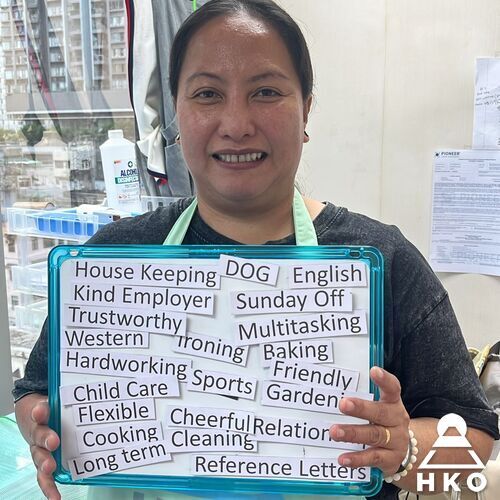 ALCOHOL
PIONEER
House Keeping DOG English
Kind Employer Sunday Off
Trustworthy Multitasking
Western Ironing Baking
Hardworking Friendly
Child Care Sports Gardening
Flexible Cheerful
Cooking Cleaning
Long term Reference Letters
HKO